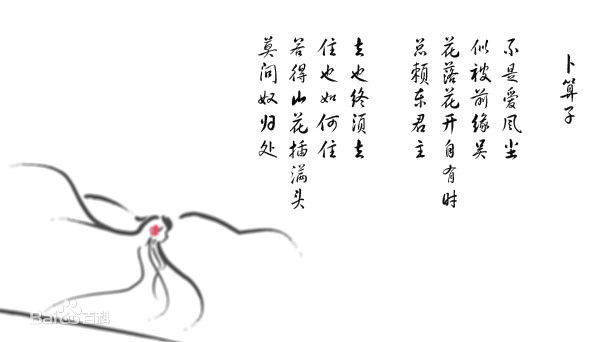 卜算子
不是爱风尘
似被前缘吴
花落花开自有时
总赖东君主
去也终须去
住也如何住
若得山花插满头
莫问奴归处
Baidu百科